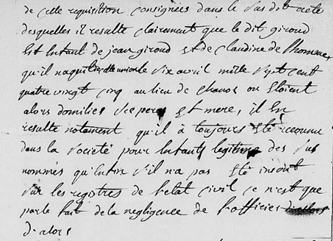 de cette requisition consignées dans le susdit acte
desquelles il resulte clairement que le dit giroud
est Enfant de jean giroud et de claudine de
qu'il naquit le six avril mille sept cent
quatre vingt cinq au lieu de chanos ou Etoient
alors domiliés ses pere et mere, il En
resulte notament qu'il à toujours Eté reconnu
dans la société pour Enfant legitime des sus
nommés qu'enfin s'il n'a pas Eté inscrit
sur les registres de l'etat civil ce n'est que
par le fait de la negligence de l'officier
d'alors